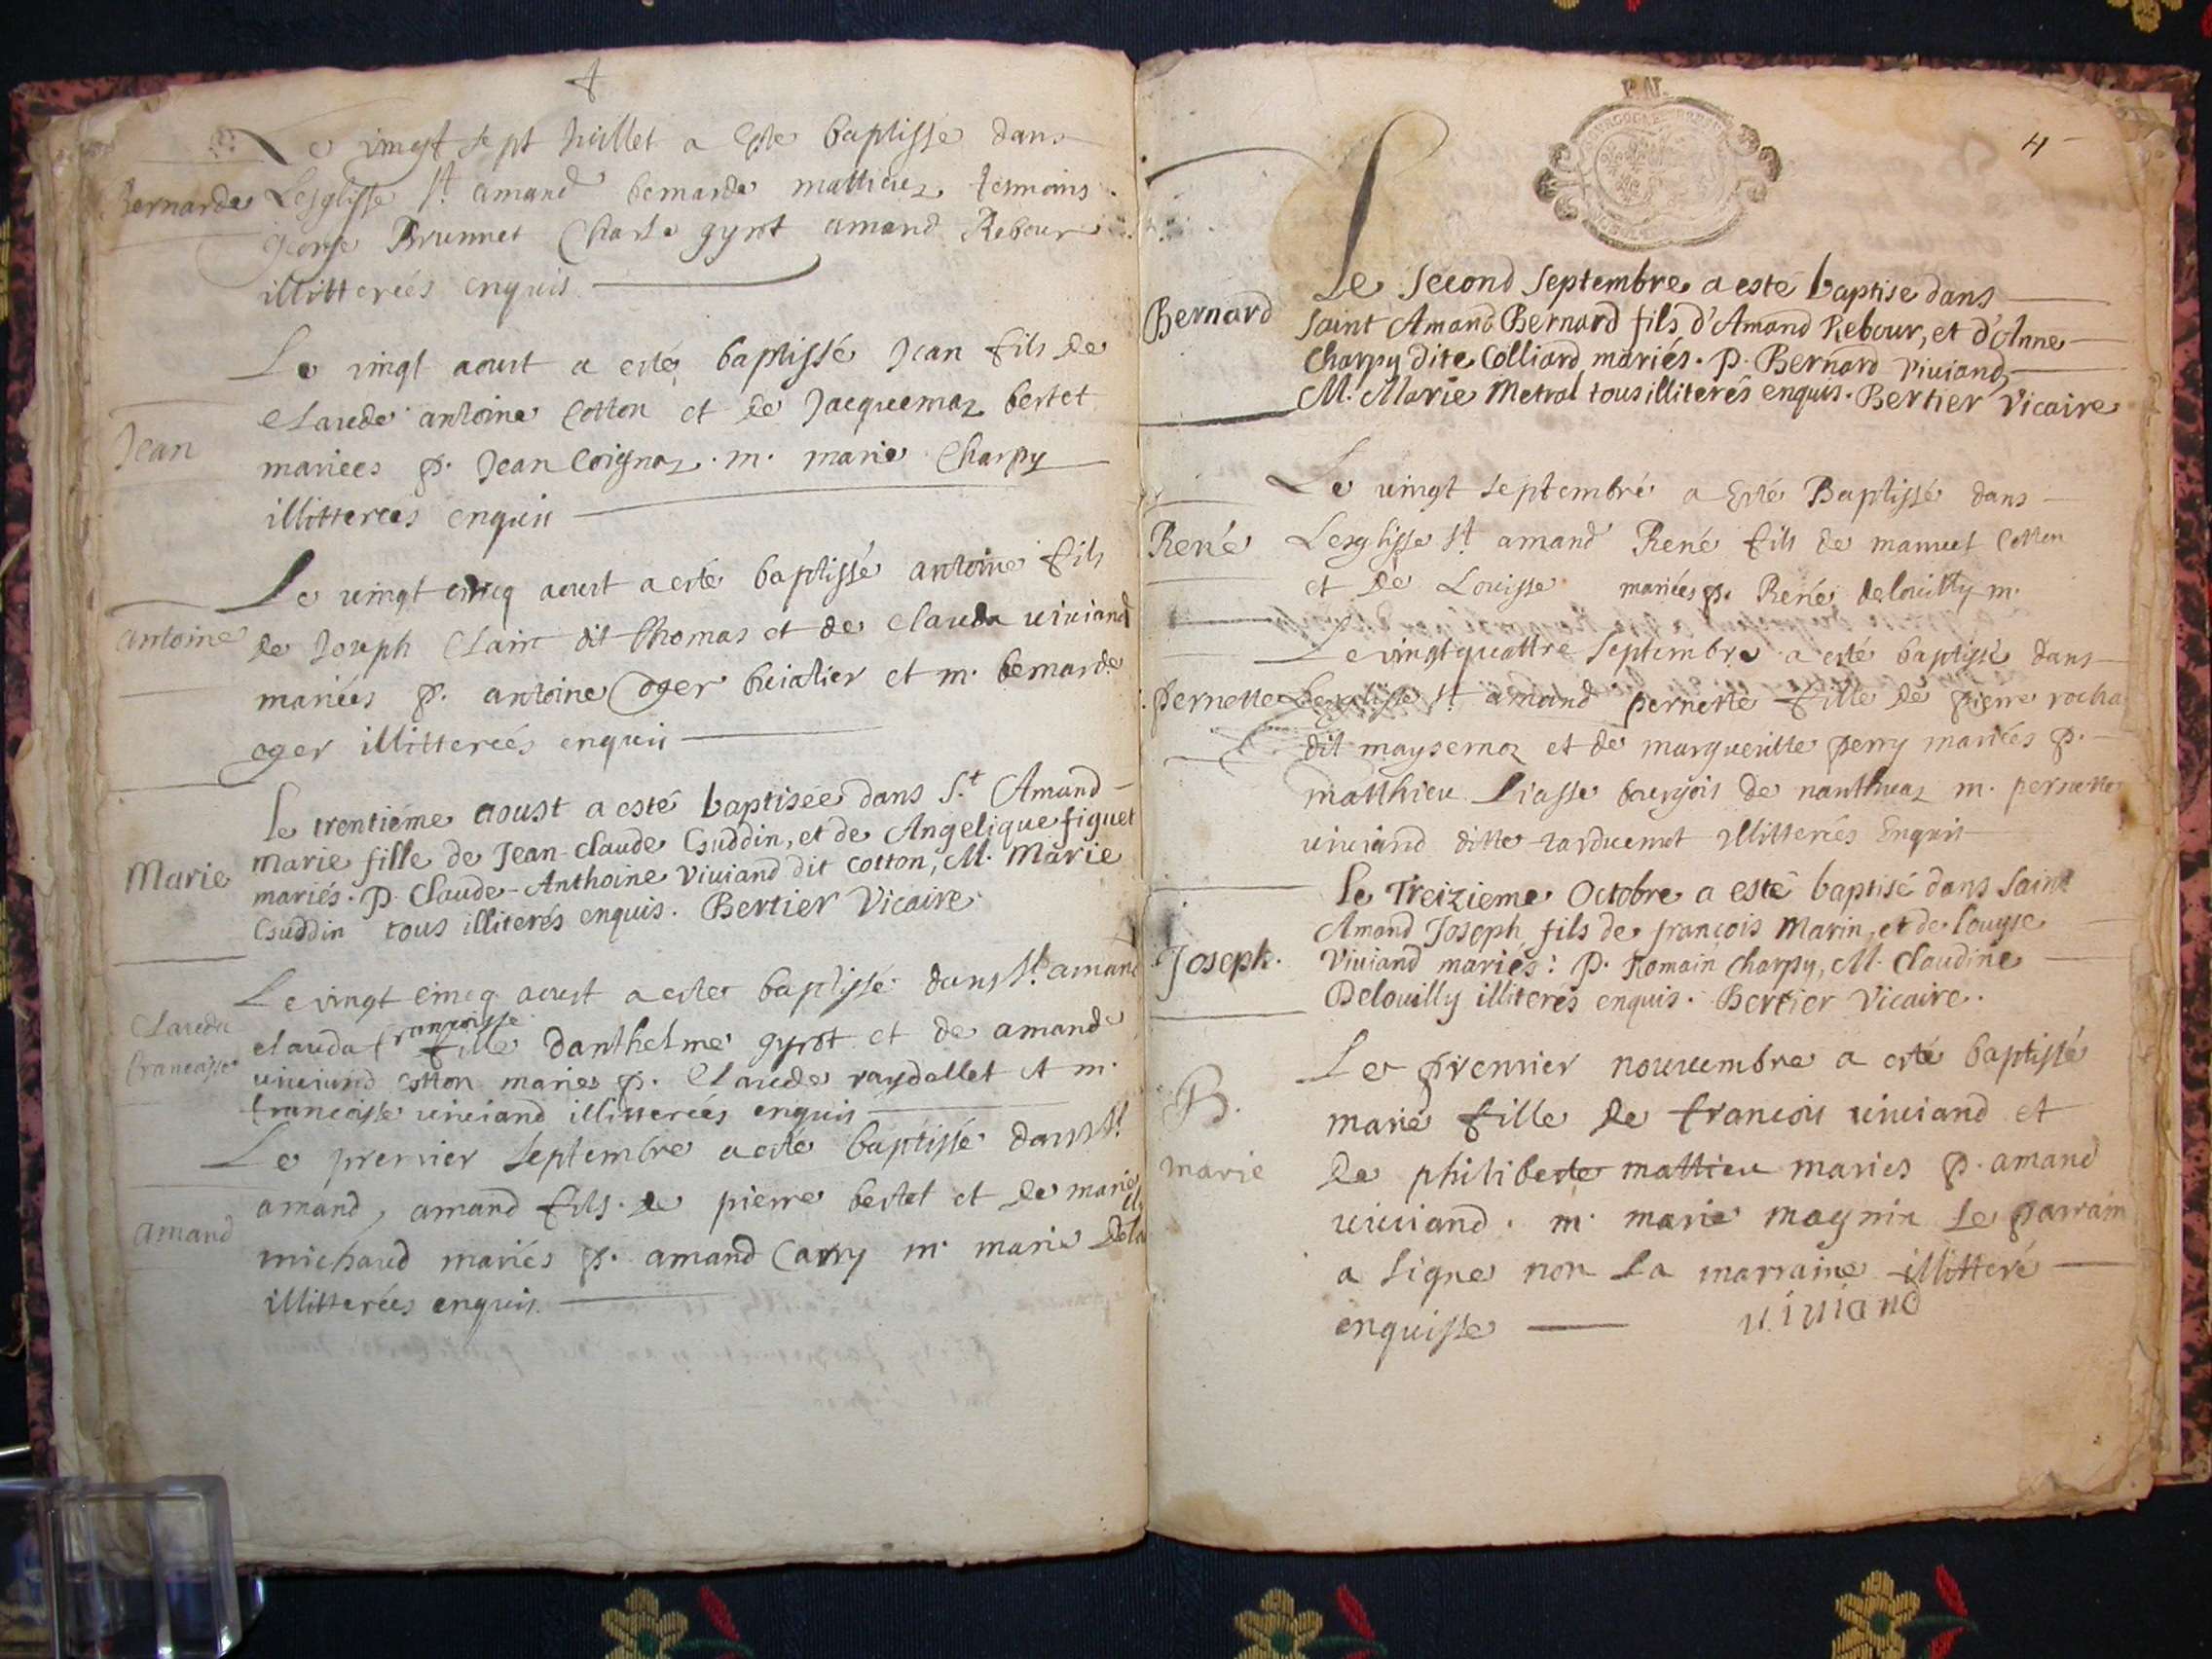 Le vingt sept Juillet a este baptisse dans
Bernarde Lesglisse St. amand bernarde mattieuz tesmoins
george Brunnet Charle gyrot amand Rebour
illitterées enquis
Le vingt aoust a esté baptissé Jean fils de
claude antoine Cotton et de Jacquemaz bertet
Jean
mariees p. Jean Coignaz . m. marie Charpy
illitterees enquis
Le vingt cincq aoust a esté baptissé antoine fils
antoine de Joseph Clain dit Thomas et de clauda viuiand
mariées p. antoine oger et m. bernarde
oger illitterées enquis
Le trentiéme aoust a esté baptisée dans S.t Amand
Marie fille de Jean-claude Guddin, et de Angelique figuet
Marie mariés. P. Claude-Anthoine Viuiand dit Cotton, M. Marie
Guddin tous illiterés enquis. Bertier Vicaire.
Le vingt cincq aoust a este baptissé dans St. amand
Clauda clauda francoisse fille danthelme gyrot et de amande
francoisse viuiand cotton maries p. Claude raydellet et m.
francoisse viuiand illitterées enquis
Le premier septembre a esté baptissé dans St.
amand, amand fils de pierre bertet et de marie
amand michaud mariés p. amand Carry m. marie
illitterées enquis
4
Le Second Septembre a esté baptise dans
Bernard Saint Amand Bernard fils d'Amand Rebour, et d'Anne
Charpy dite Colliard mariés. P. Bernard Viuiand,
M. Marie Metral tous illiterés enquis. Bertier Vicaire
Le vingt septembré a Esté Baptissé dans
René Lesglisse St. amand René fils de manuel Cotton
et de Louisse mariées p. René delouilly m.
Le vingtquattre Septembre a esté baptissé dans
pernette Lesglisse St. amand pernette fille de pierre rocha
dit maysemaz et de marguerille perry mariées p.
matthieu Liasse bourgois de nanthuaz m. pernette
viuiand ditte illitterées Enquis
Le Treizieme Octobre a esté baptisé dans Saint
Amand Joseph fils de françois Marin, et de Louyse
Joseph. Viuiand mariés: P. Romain Charpy, M. Claudine
Delouilly illiterés enquis. Bertier Vicaire.
Le premier nouuembre a esté baptissé
B. marie fille de francois viuiand et
marie de philiberte mattieu maries p. amand
viuiand . m. marie magnin Le parrain
a signe non La marraine illitteré
enquisse viuiand